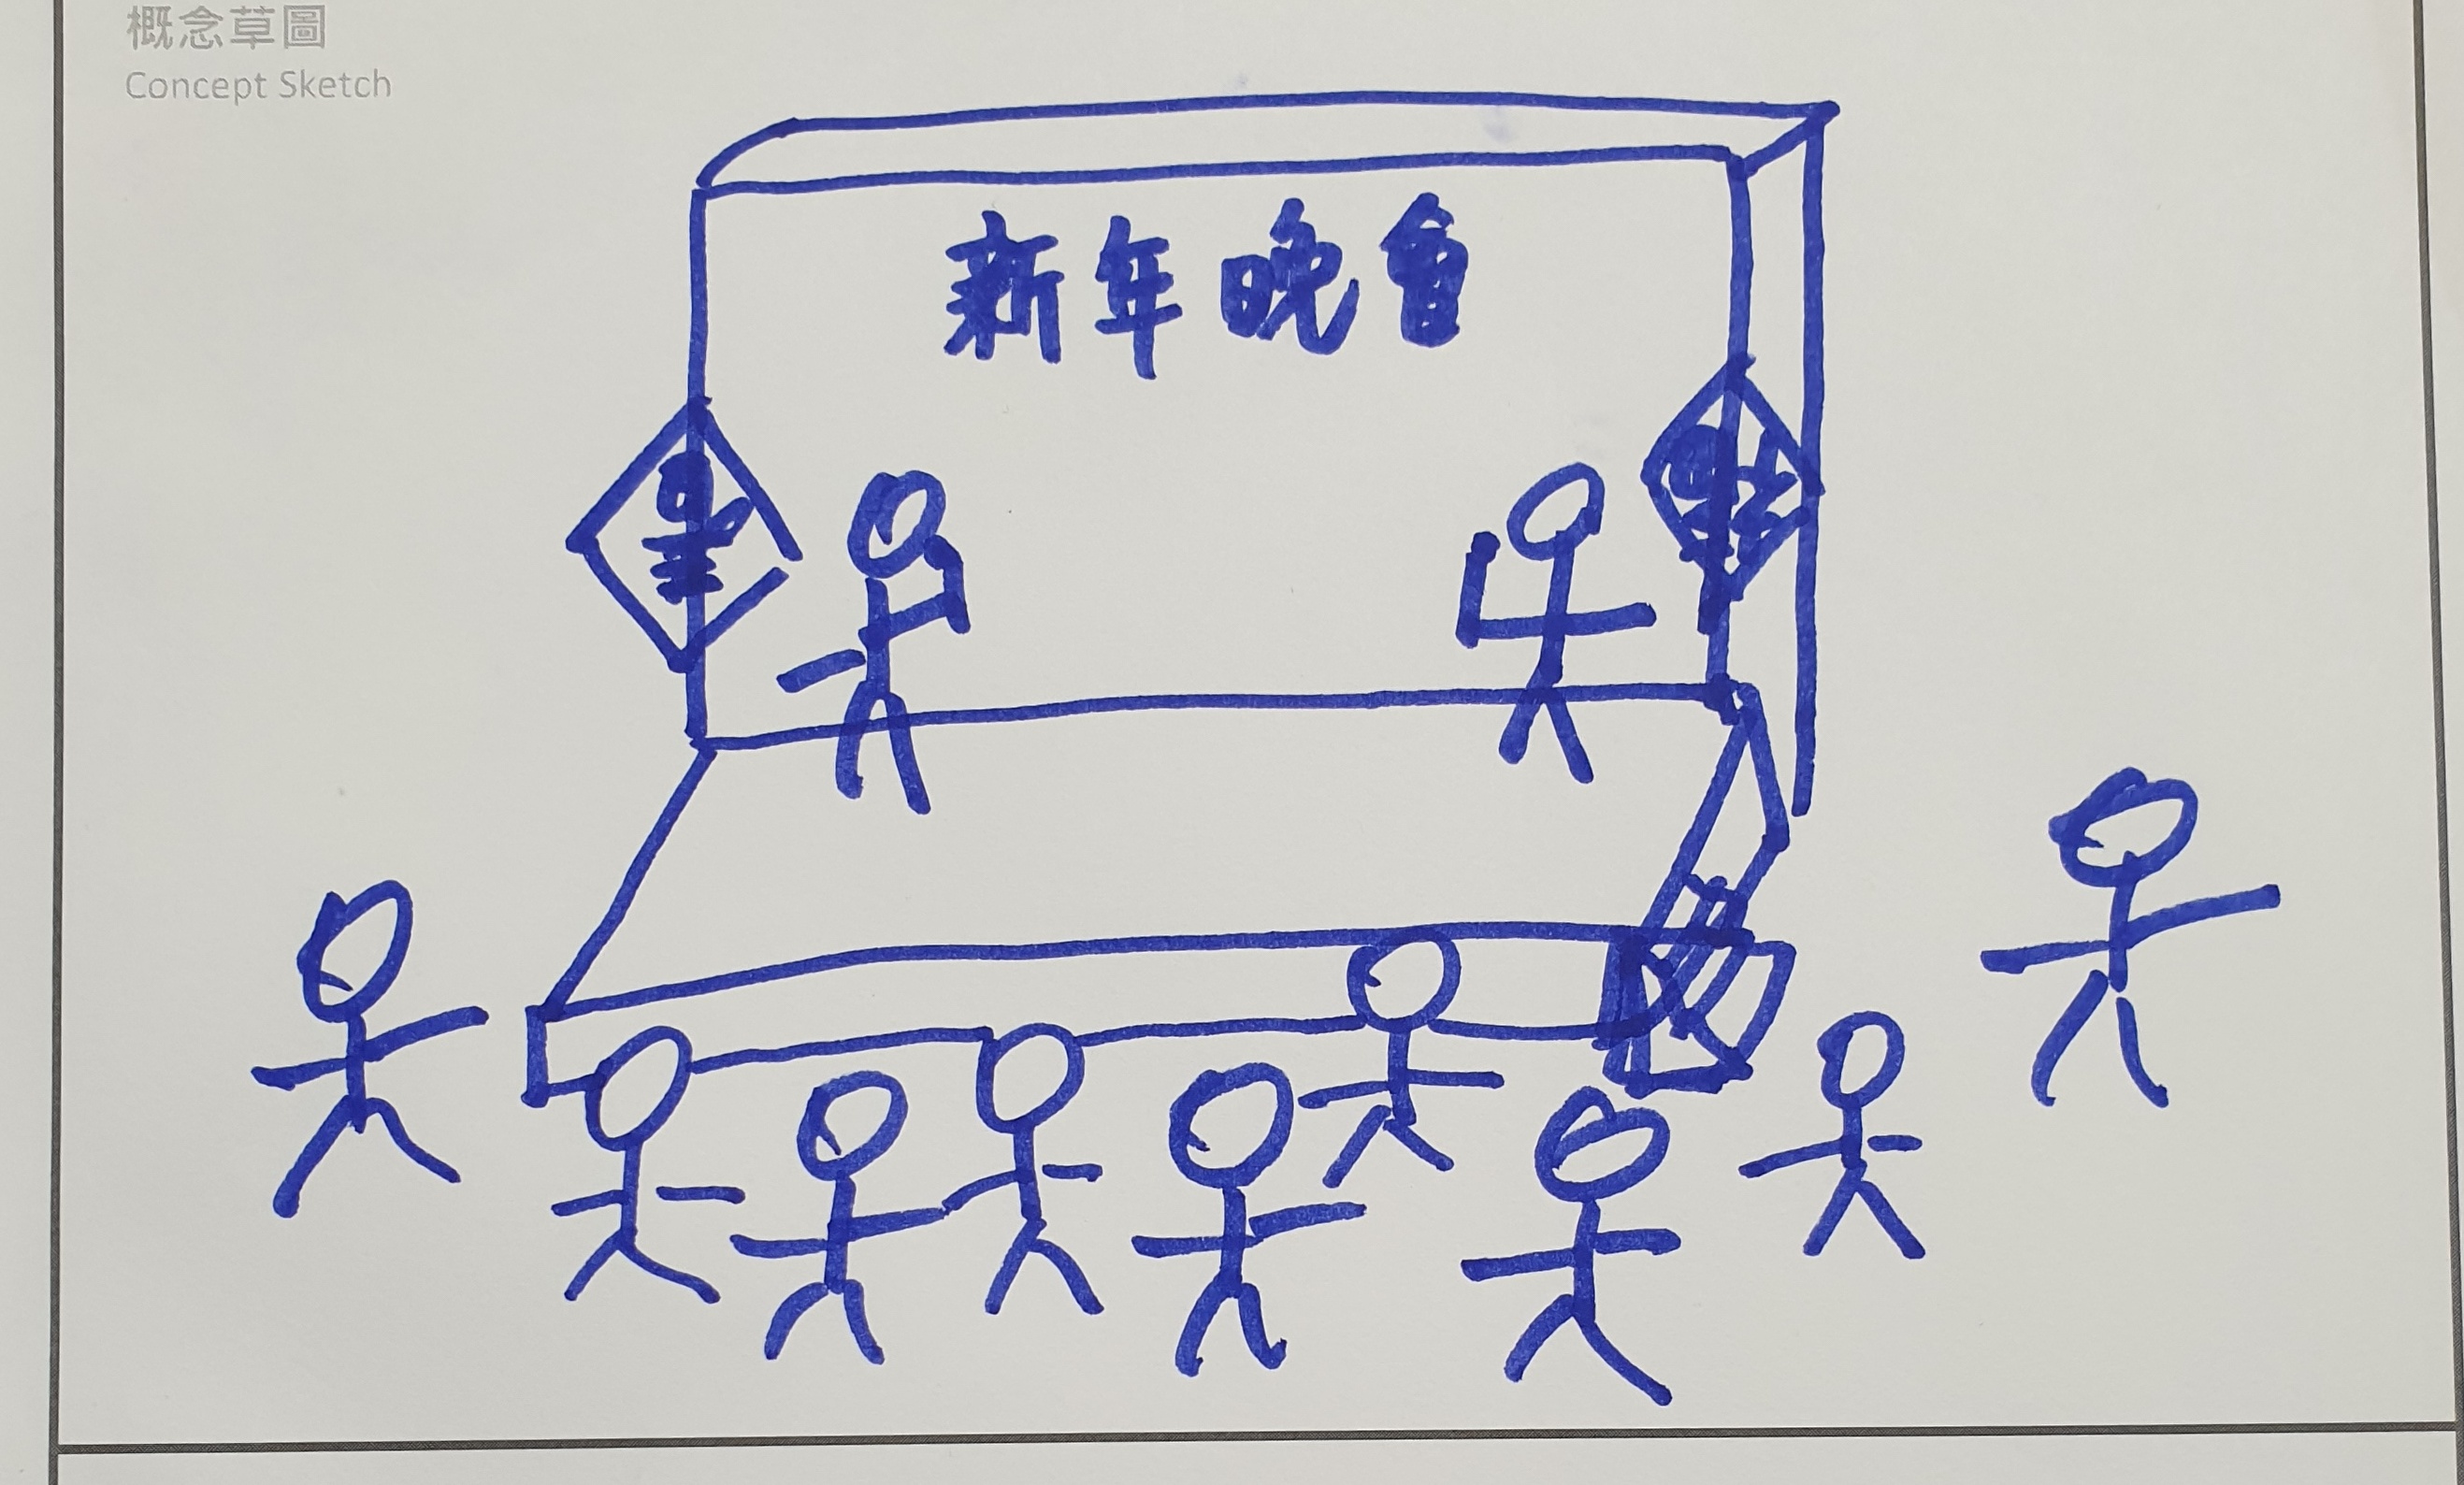 概念草圖
Concept Sketch
新年晚會